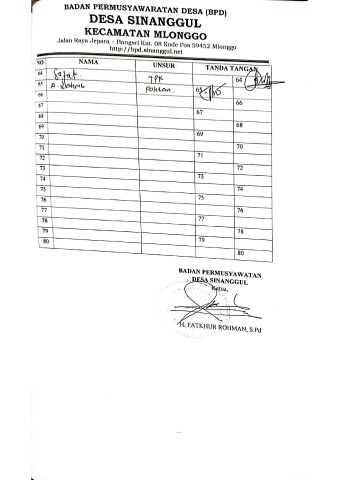 BADAN PERMUSYAWARATAN DESA (BPD)
DESA SINANGGUL
KECAMATAN MLONGGO
Jalan Raya Jepara – Bangsri Km. 08 Kode Pos 59452 Mlonggo
http://bpd.sinanggul.net
NO NAMA UNSUR TANDA TANGAN
64 TPK 64
65 A. Poktan. 65
66 66
67 67
68 68
69 69
70 70
71 71
72 72
73 73
74 74
75 75
76 76
77 77
78 78
79 79
80 80
BADAN PERMUSYAWATAN
DESA SINANGGUL
Ketua,
H. FATKHUR ROHMAN, S.Pd